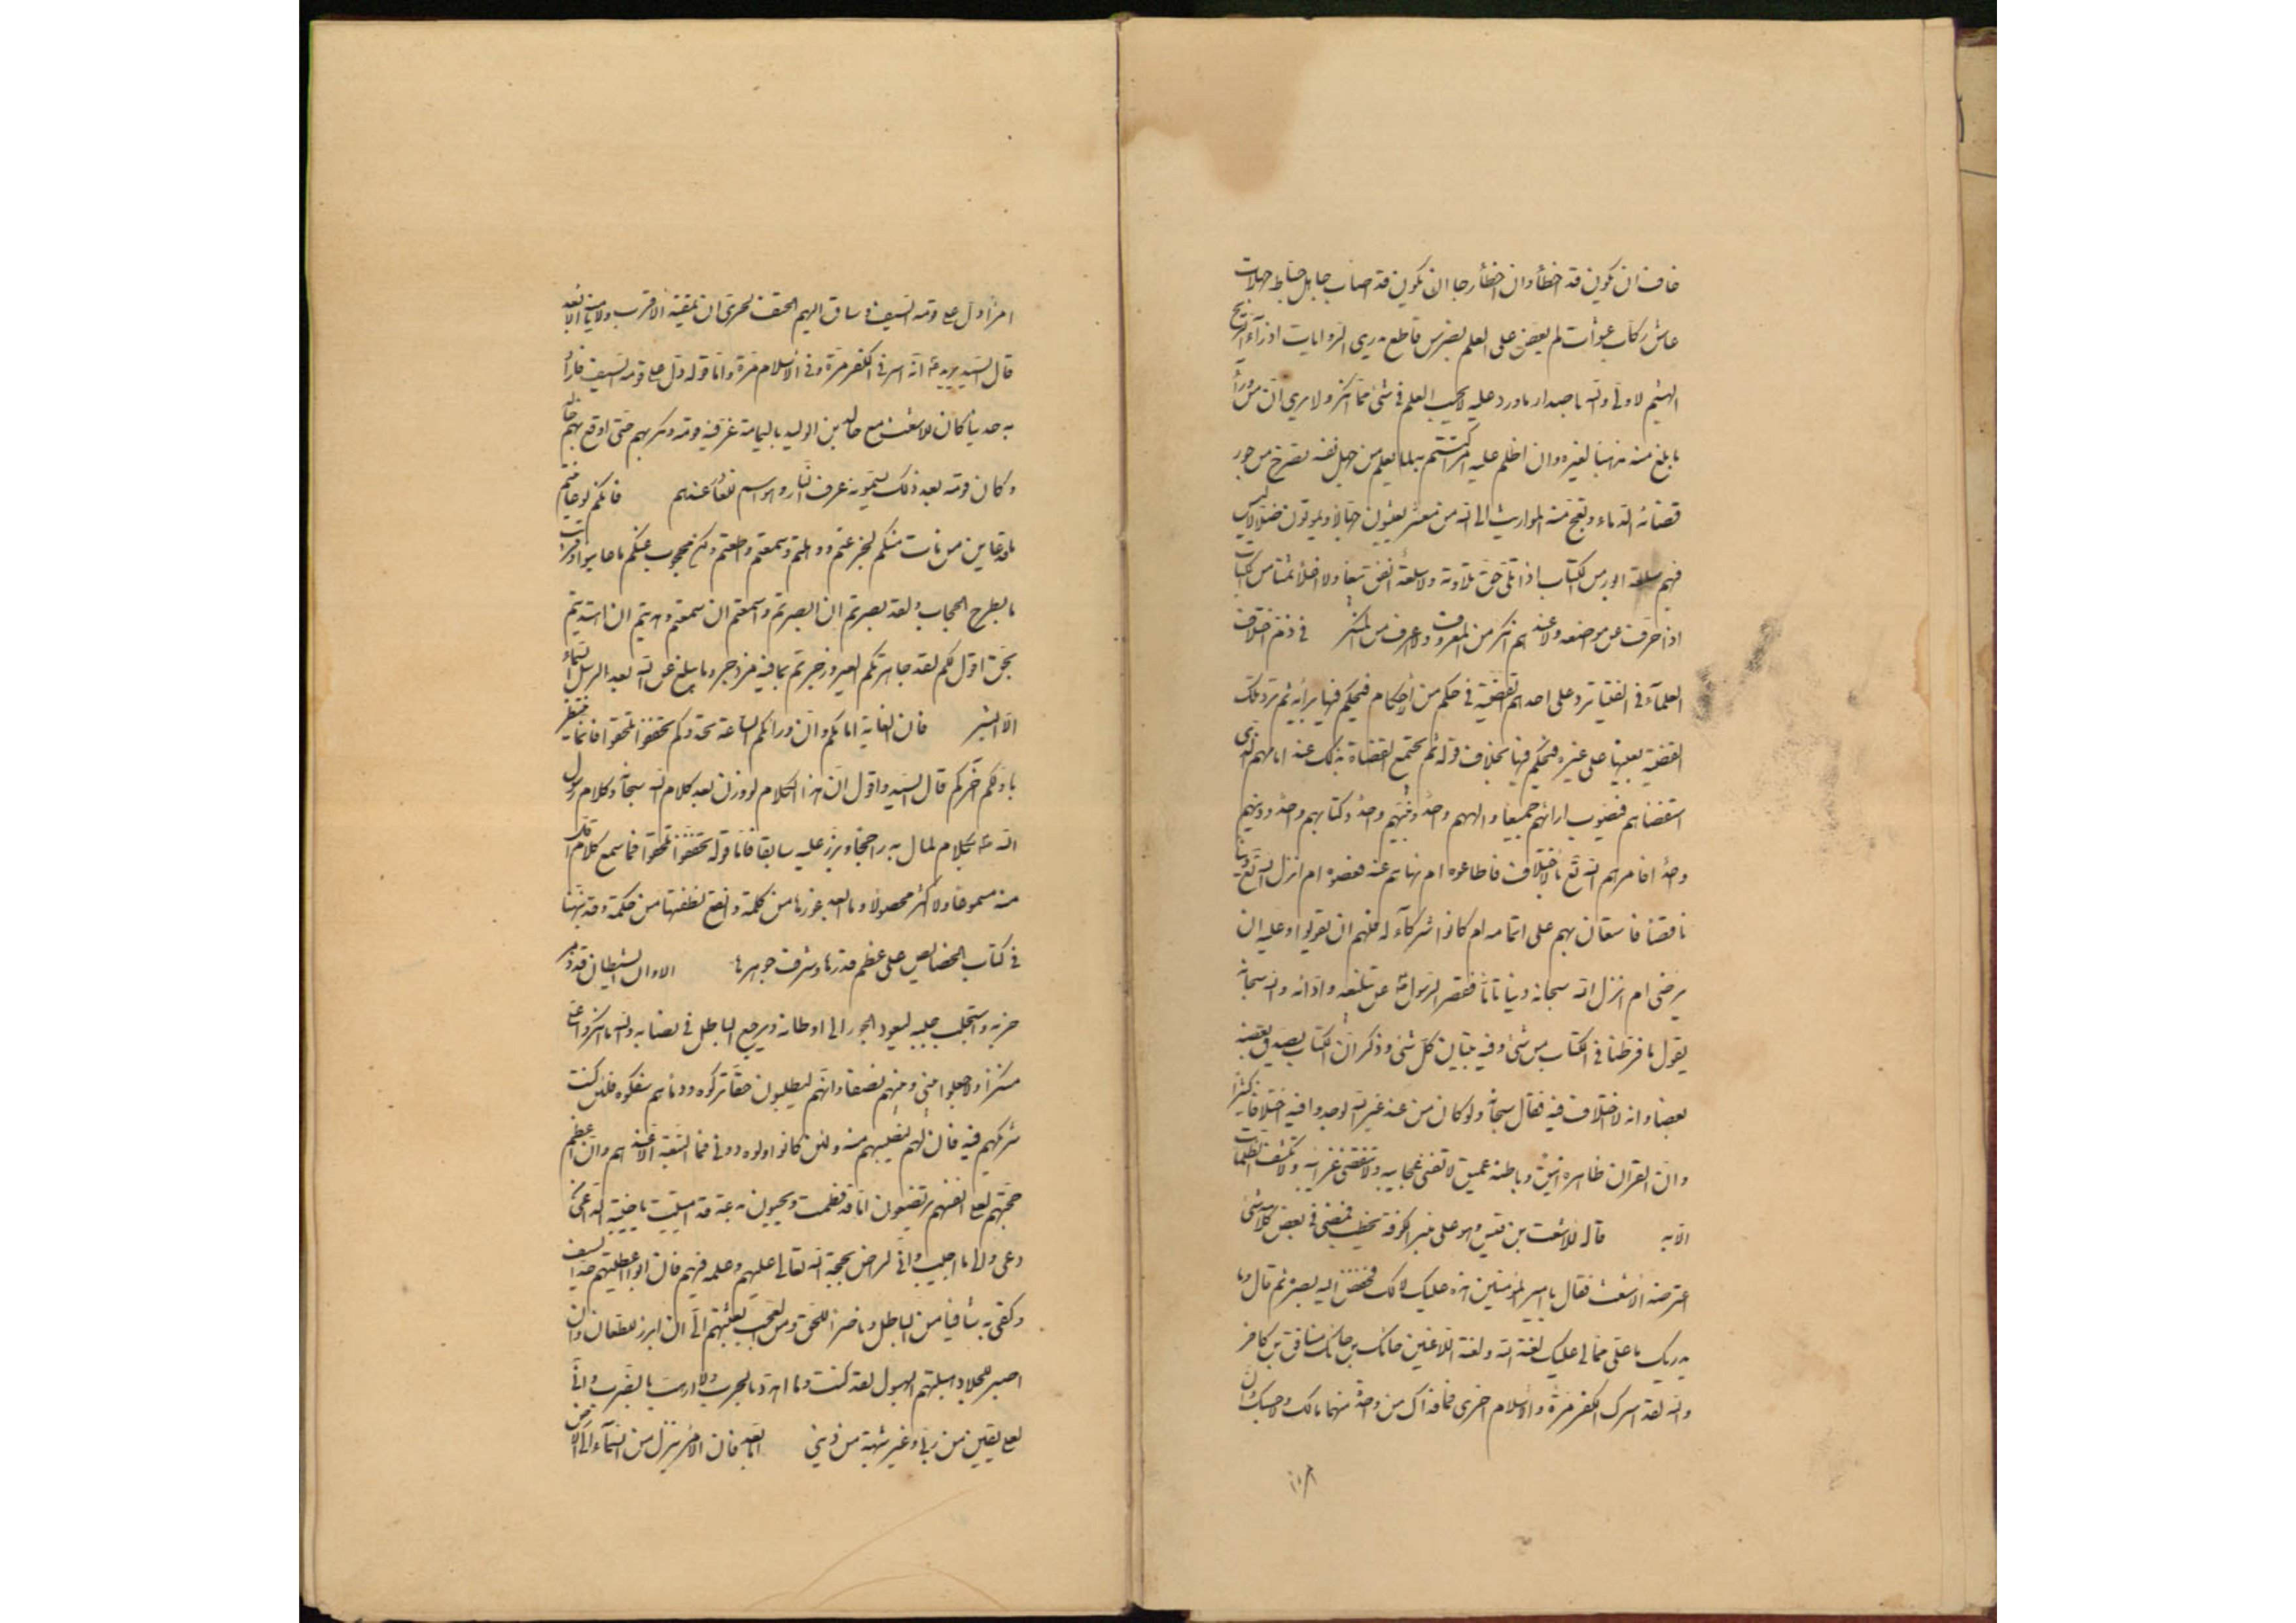 خاف ان يكون قد اخطأ وان اخطأ رجا ان يكون قد اصاب جاهل خباط جهلات
عاش ركاب عشوات لم يعض على العلم بضرس قاطع يذري الروايات اذراء الريح
الهشيم لا ملي والله باصدار ما ورد عليه لا يحسب العلم في شئ مما انكره ولا يرى ان من وراء
ما بلغ منه مذهبا لغيره وان اظلم عليه امر اكتتم به لما يعلم من جهل نفسه تصرخ من جور
قضائه الدماء وتعج منه المواريث الى الله من معشر يعيشون جهالا ويموتون ضلالا ليس
فيهم سلعة ابور من الكتاب اذا تلي حق تلاوته ولا سلعة انفق بيعا ولا اغلا ثمنا من الكتاب
اذا حرف عن موضعه ولا عندهم انكر من المعروف ولا اعرف من المنكر في ذم اختلاف
العلماء في الفتيا ترد على احدهم القضية في حكم من الاحكام فيحكم فيها برأيه ثم ترد تلك
القضية بعينها على غيره فيحكم فيها بخلاف قوله ثم يجتمع القضاة بذلك عند امامهم الذي
استقضاهم فيصوب ارائهم جميعا والههم واحد ونبيهم واحد وكتابهم واحد ودينهم
واحد افامرهم الله تع بالاختلاف فاطاعوه ام نهاهم عنه فعصوه ام انزل الله تع دينا
ناقصا فاستعان بهم على اتمامه ام كانوا شركاء له فلهم ان يقولوا وعليه ان
يرضى ام انزل الله سبحانه دينا تاما فقصر الرسول عن تبليغه وادائه والله سبحانه
يقول ما فرطنا في الكتاب من شئ وفيه تبيان كل شئ وذكر ان الكتاب يصدق بعضه
بعضا وانه لا اختلاف فيه فقال سبحانه ولو كان من عند غير الله لوجدوا فيه اختلافا كثيرا
وان القران ظاهره انيق وباطنه عميق لا تفنى عجايبه ولا تنقضي غرايبه ولا تكشف الظلمات
الا به قاله للاشعث بن قيس وهو على منبر الكوفة يخطب فمضى في بعض كلامه شئ
اعترضه الاشعث فقال يا امير المؤمنين هذه عليك لا لك فخفض اليه بصره ثم قال وما
يدريك ما علي مما لي عليك لعنة الله ولعنة اللاعنين حائك بن حائك منافق بن كافر
والله لقد اسرك الكفر مرة والاسلام اخرى فما فداك من واحدة منهما مالك ولا حسبك ان
امرأ دل على قومه السيف وساق اليهم الحتف لحري ان يمقته الاقرب ولا يامنه الابعد
قال السيد يريد انه اسر في الكفر مرة وفي الاسلام مرة واما قوله دل على قومه السيف فاراد
به حديثا كان للاشعث مع خالد بن الوليد باليمامة غر فيه قومه ومكر بهم حتى اوقع بهم خالد
وكان قومه بعد ذلك يسمونه عرف النار وهو اسم للغادر عندهم فانكم لو عاينتم
ما قد عاين من مات منكم لجزعتم ووهلتم وسمعتم واطعتم ولكن محجوب عنكم ما عاينوا وقريب
ما يطرح الحجاب ولقد بصرتم ان ابصرتم واسمعتم ان سمعتم وهديتم ان اهتديتم
بحق اقول لكم لقد جاهرتكم العبر وزجرتم بما فيه مزدجر وما يبلغ عن الله بعد رسل السماء
الا البشر فان الغاية امامكم وان ورائكم الساعة تحدوكم تخففوا تلحقوا فانما ينتظر
باولكم آخركم قال السيد واقول ان هذا الكلام لو وزن بعد كلام الله سبحانه وكلام رسول
الله بكل كلام لمال به راجحا وبرز عليه سابقا فاما قوله تخففوا تلحقوا فما سمع كلام اقل
منه مسموعا ولا اكثر محصولا وما ابعد غورها من كلمة وانقع نطفتها من حكمة وقد نبهنا
في كتاب الخصائص على عظم قدرها وشرف جوهرها الا وان الشيطان قد ذمر
حزبه واستجلب جلبه ليعود الجور الى اوطانه ويرجع الباطل في نصابه والله ما انكروا علي
منكرا ولا جعلوا بيني وبينهم نصفا وانهم ليطلبون حقا تركوه ودما هم سفكوه فلئن كنت
شركهم فيه فان لهم لنصيبهم منه ولئن كانوا ولوه دوني فما التبعة الا عندهم وان اعظم
حجتهم لعلى انفسهم يرتضعون اما قد فطمت ويحيون بدعة قد اميتت يا خيبة الداعي
دعى والى ما اجيب واني لراض بحجة الله تعالى عليهم وعلمه فيهم فان ابوا اعطيتهم حد السيف
وكفى به شافيا من الباطل وناصرا للحق ومن العجب بعثتهم الي ان ابرز للطعان وان
اصبر للجلاد هبلتهم الهبول لقد كنت وما اهدد بالحرب ولا ارهب بالضرب واني
لعلى يقين من ربي وغير شبهة من ديني اما بعد فان الامر ينزل من السماء الى الارض